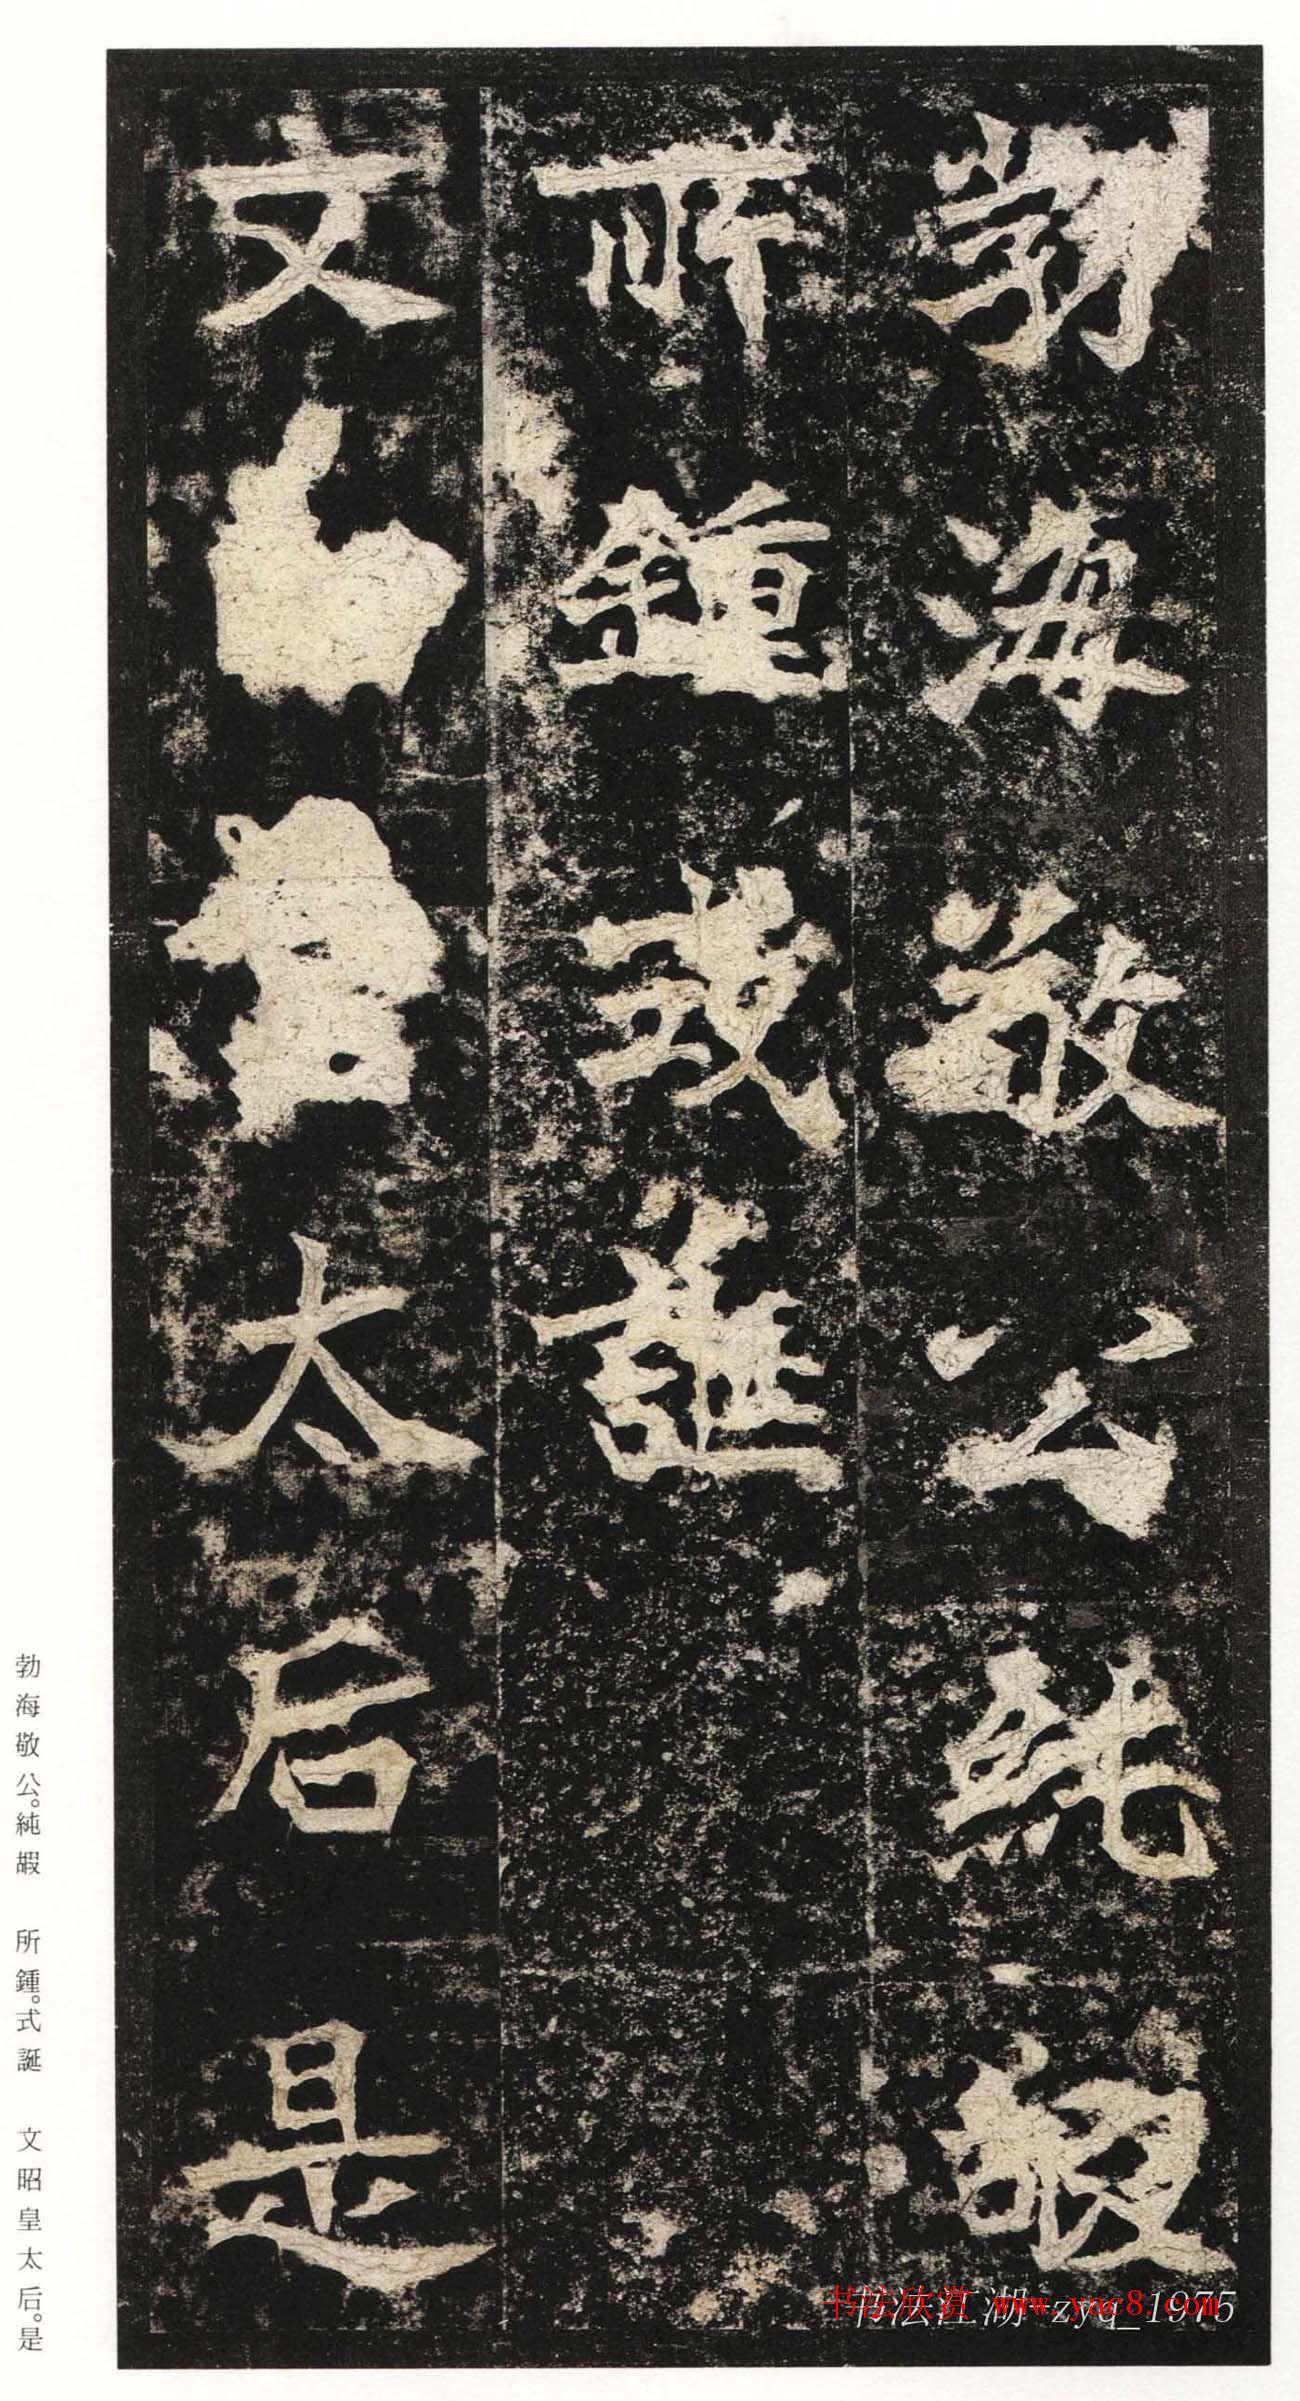 勃海敬公純嘏
所鍾式誕
文昭皇太后是
勃海敬公。純嘏　所鍾。式誕　文昭皇太后。是
书法欣赏 www.yac8.com
书法江湖-zyq_1975